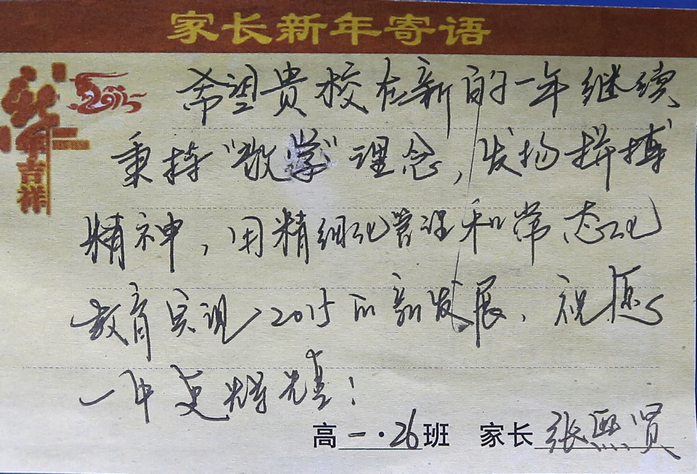 家长新年寄语
新年吉祥 2015
希望贵校在新的一年继续
秉持"学"理念,发扬拼搏
精神,用精细化管理和常态化
教育实现2015的新发展,祝愿
一中更辉煌!
高一·26班 家长张熙贤